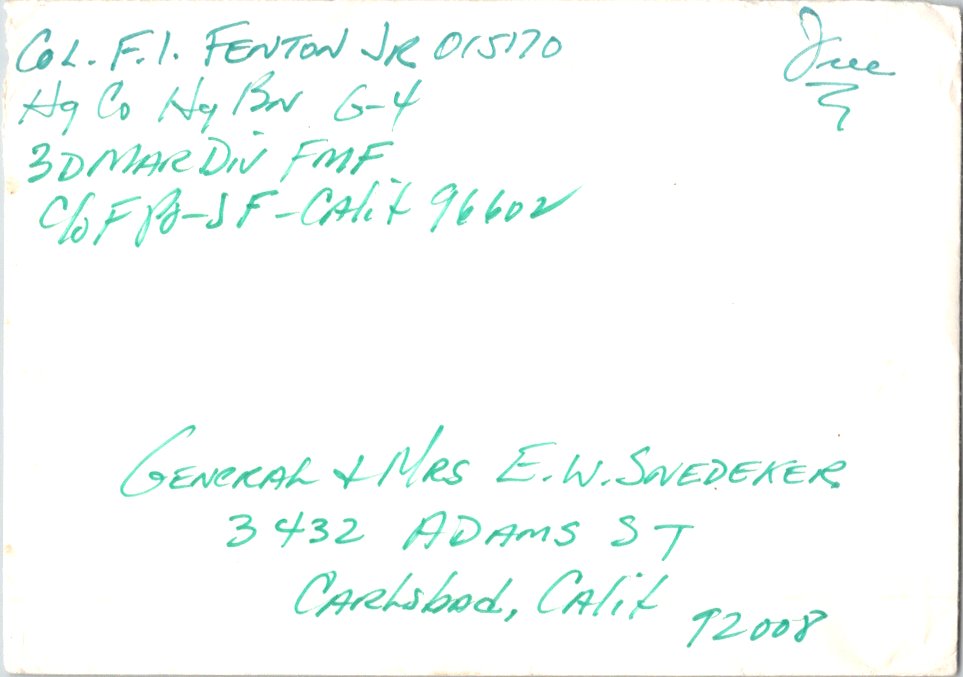 COL. F.I. FENTON JR 015170
Free
Hq Co Hq BN G-4
3D MAR DIV FMF
C/O FPO-SF-Calif 96602
GENERAL + MRS E.W. SNEDEKER
3432 ADAMS ST
Carlsbad, Calif
92008